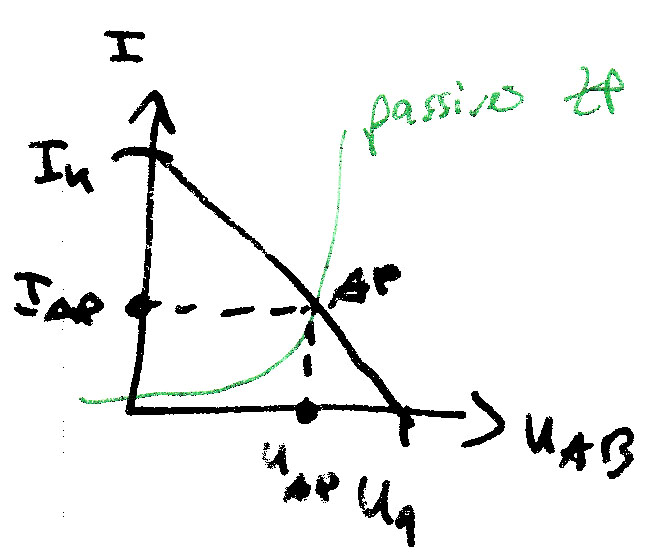 I
passive ZP
I_k
I_AP
AP
U_AB
U_AP U_q